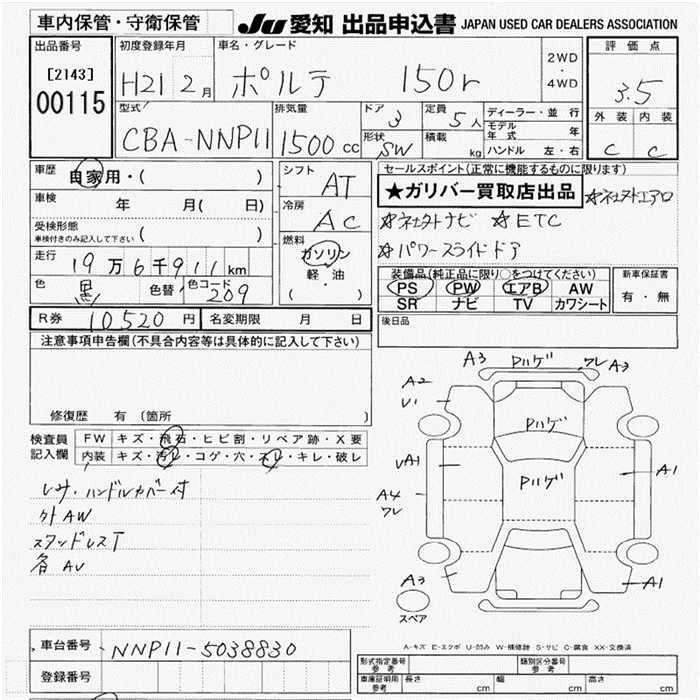 車内保管・守衛保管 JU 愛知 出品申込書 JAPAN USED CAR DEALERS ASSOCIATION
出品番号 初度登録年月 車名・グレード 2WD・4WD 評価点
[2143] 00115 H21 2月 ポルテ 150r 3.5
型式 排気量 ドア 3 定員 5人 ディーラー・並行 外装 内装
CBA-NNP11 1500cc 形状 SW 積載 kg モデル年式 年 C C
ハンドル 左・右
車歴 自家用・( ) シフト AT セールスポイント(正常に機能するものに限ります)
車検 年 月( 日) 冷房 AC ★ガリバー買取店出品 ☆社外エアロ
受検形態 車検付きのみ記入して下さい ( ) ☆社外ナビ ☆ETC
燃料 ガソリン 軽・油 ( ・ ) ☆パワースライドドア
走行 19万6千911km 装備品(純正品に限り○をつけてください) 新車保証書
色 黒 色替 色コード 209 PS PW エアB AW 有・無
SR ナビ TV カワシート
R券 10520円 名変期限 月 日 後日品
注意事項申告欄(不具合内容等は具体的に記入して下さい)
修復歴 有 (箇所 )
検査員記入欄 FW キズ・飛石・ヒビ割・リペア跡・X要
内装 キズ・汚レ・コゲ・穴・スレ・キレ・破レ
シサ・ハンドルカバー付
外AW
スタッドレスT
各AU
A3 Pハゲ ワレ A3
A2
U1
Pハゲ
UA1 Pハゲ A1
A4
ワレ
A3 A1
スペア
A・キズ E・エクボ U・凹み W・補修跡 S・サビ C・腐食 XX・交換済
車台番号 NNP11-5038830
登録番号
型式指定番号 参考 類別区分番号 参考
車庫証明用 参考 長さ cm 幅 cm 高さ cm